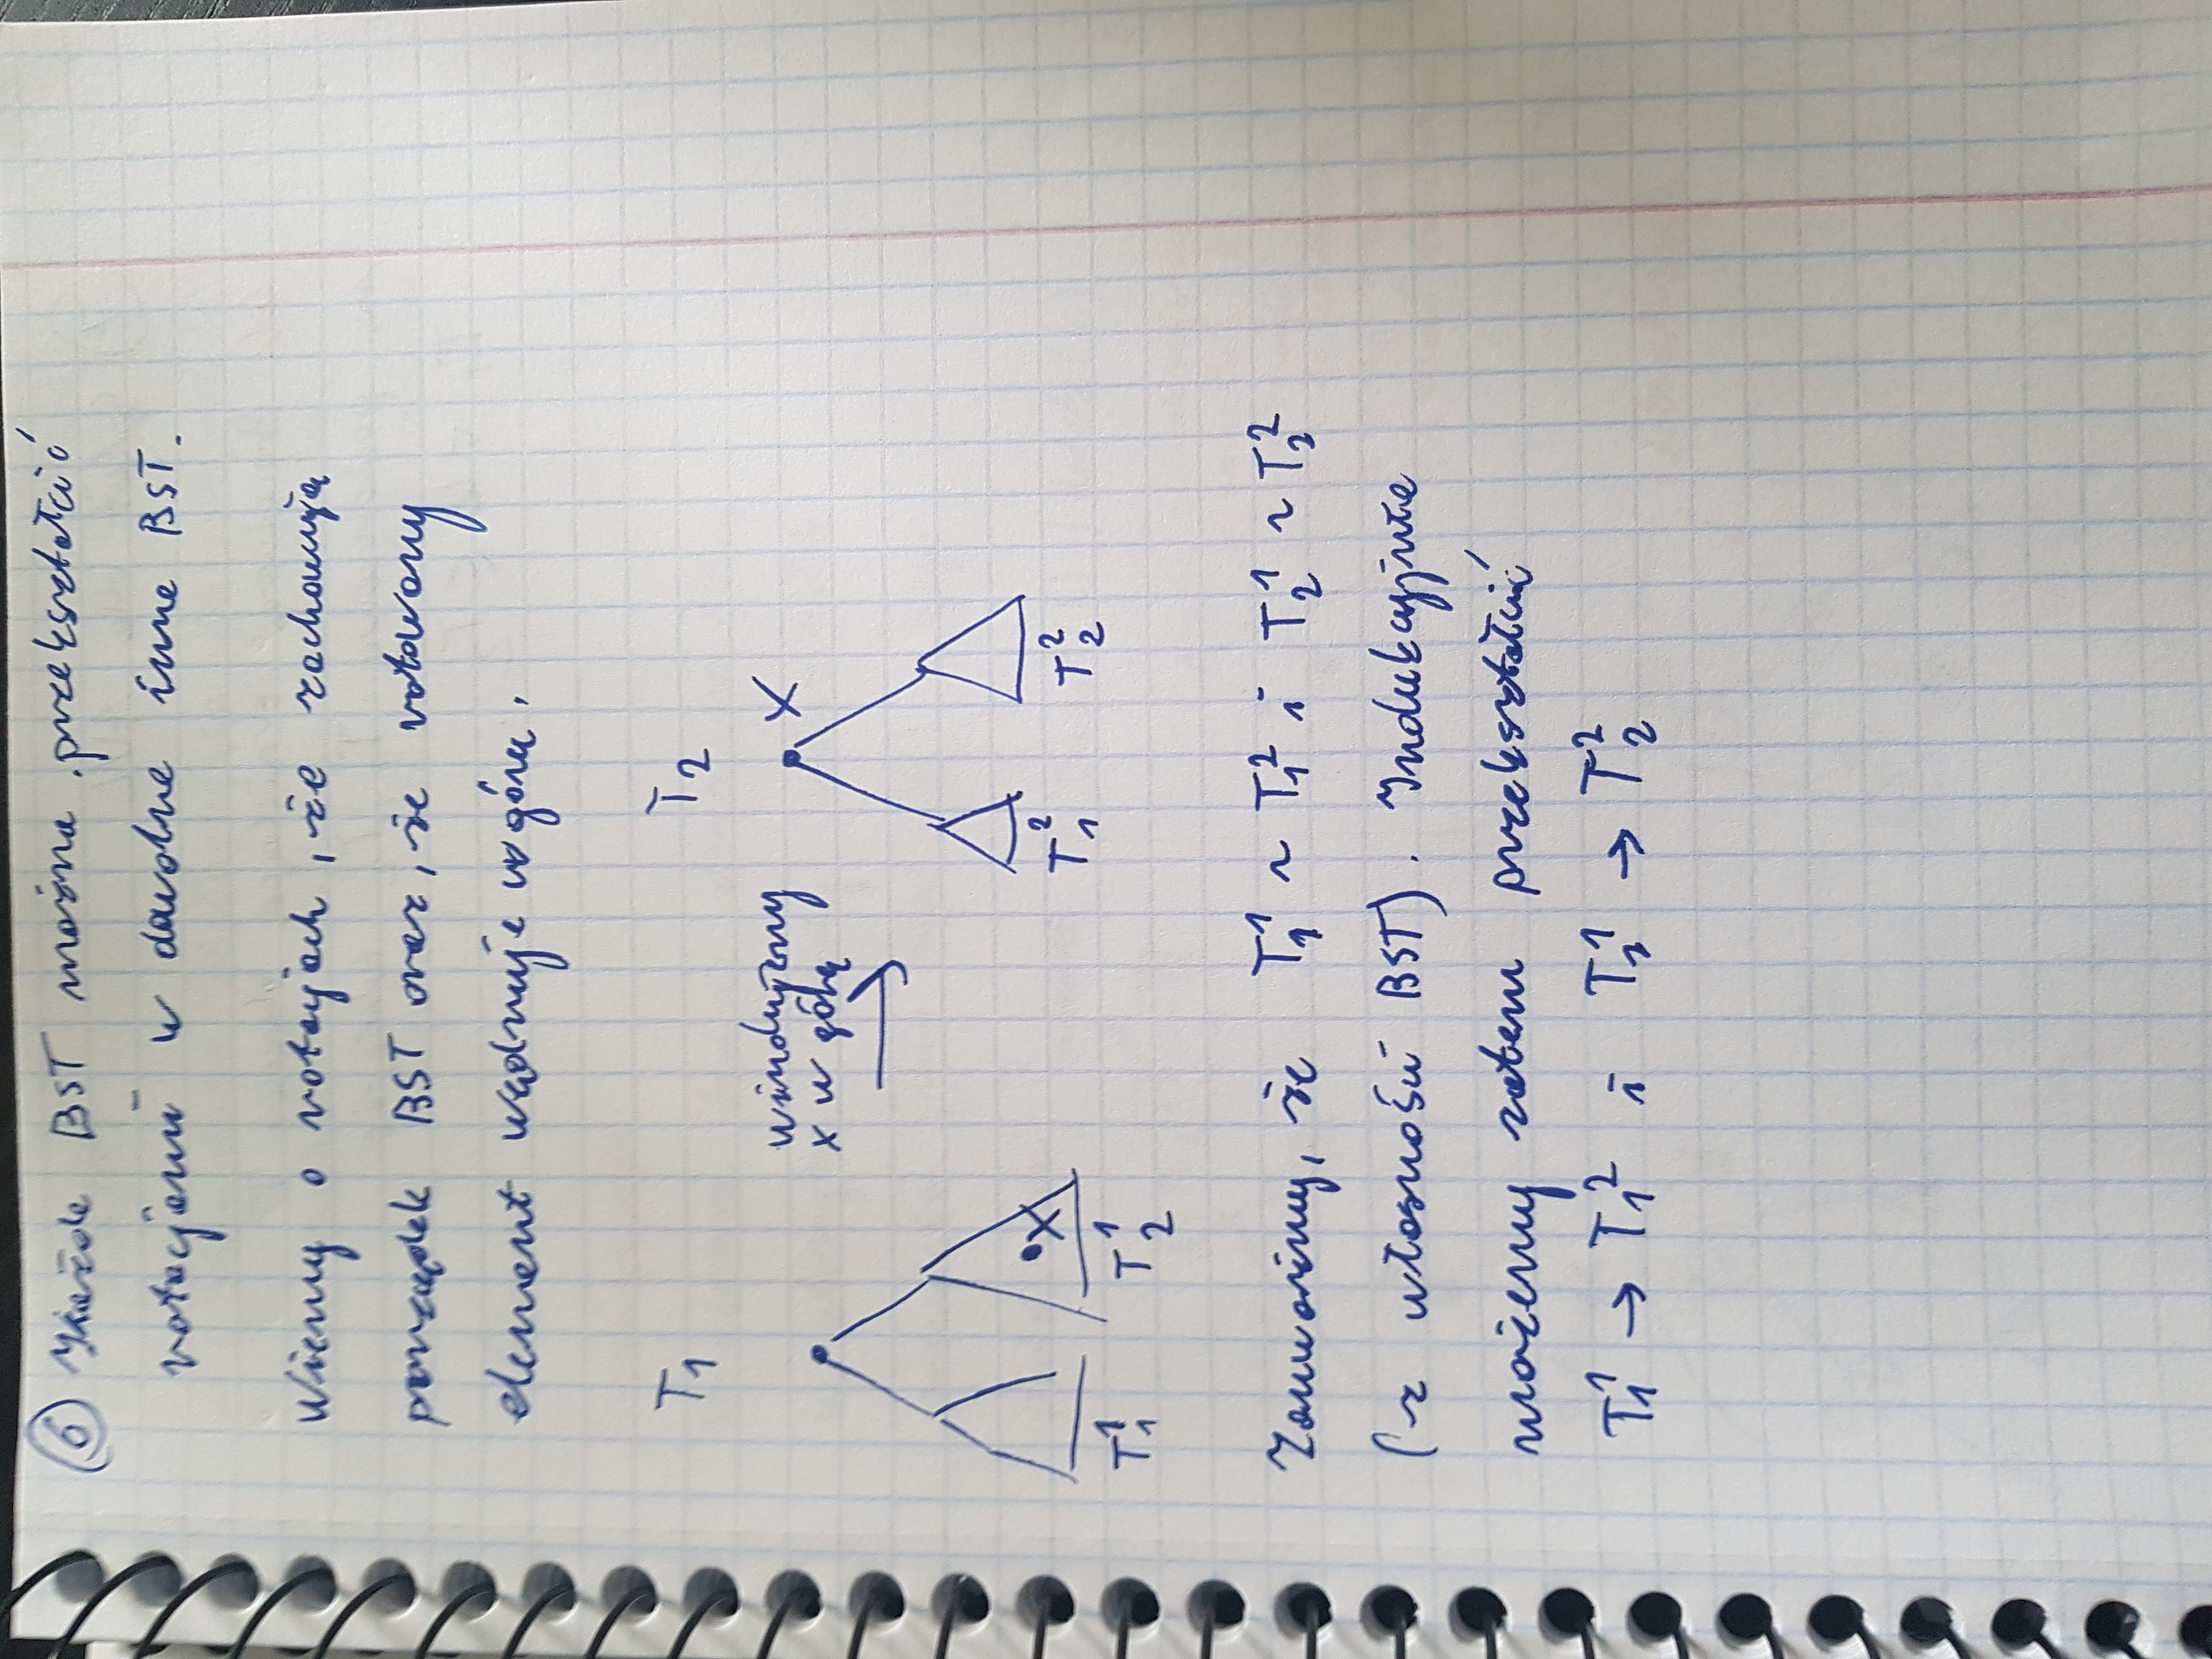 6 Każde BST można przekształcić
rotacjami w dowolne inne BST.
Wiemy o rotacjach, że zachowują
porządek BST oraz, że rotowany
element wędruje w górę.
T₁ T₂
windujemy
x w górę
x
x
T₁¹ T₂¹ T₁² T₂²
Zauważmy, że T₁¹ ~ T₁² i T₂¹ ~ T₂²
(z własności BST). Indukcyjnie
możemy zatem przekształcić
T₁¹ → T₁² i T₂¹ → T₂²